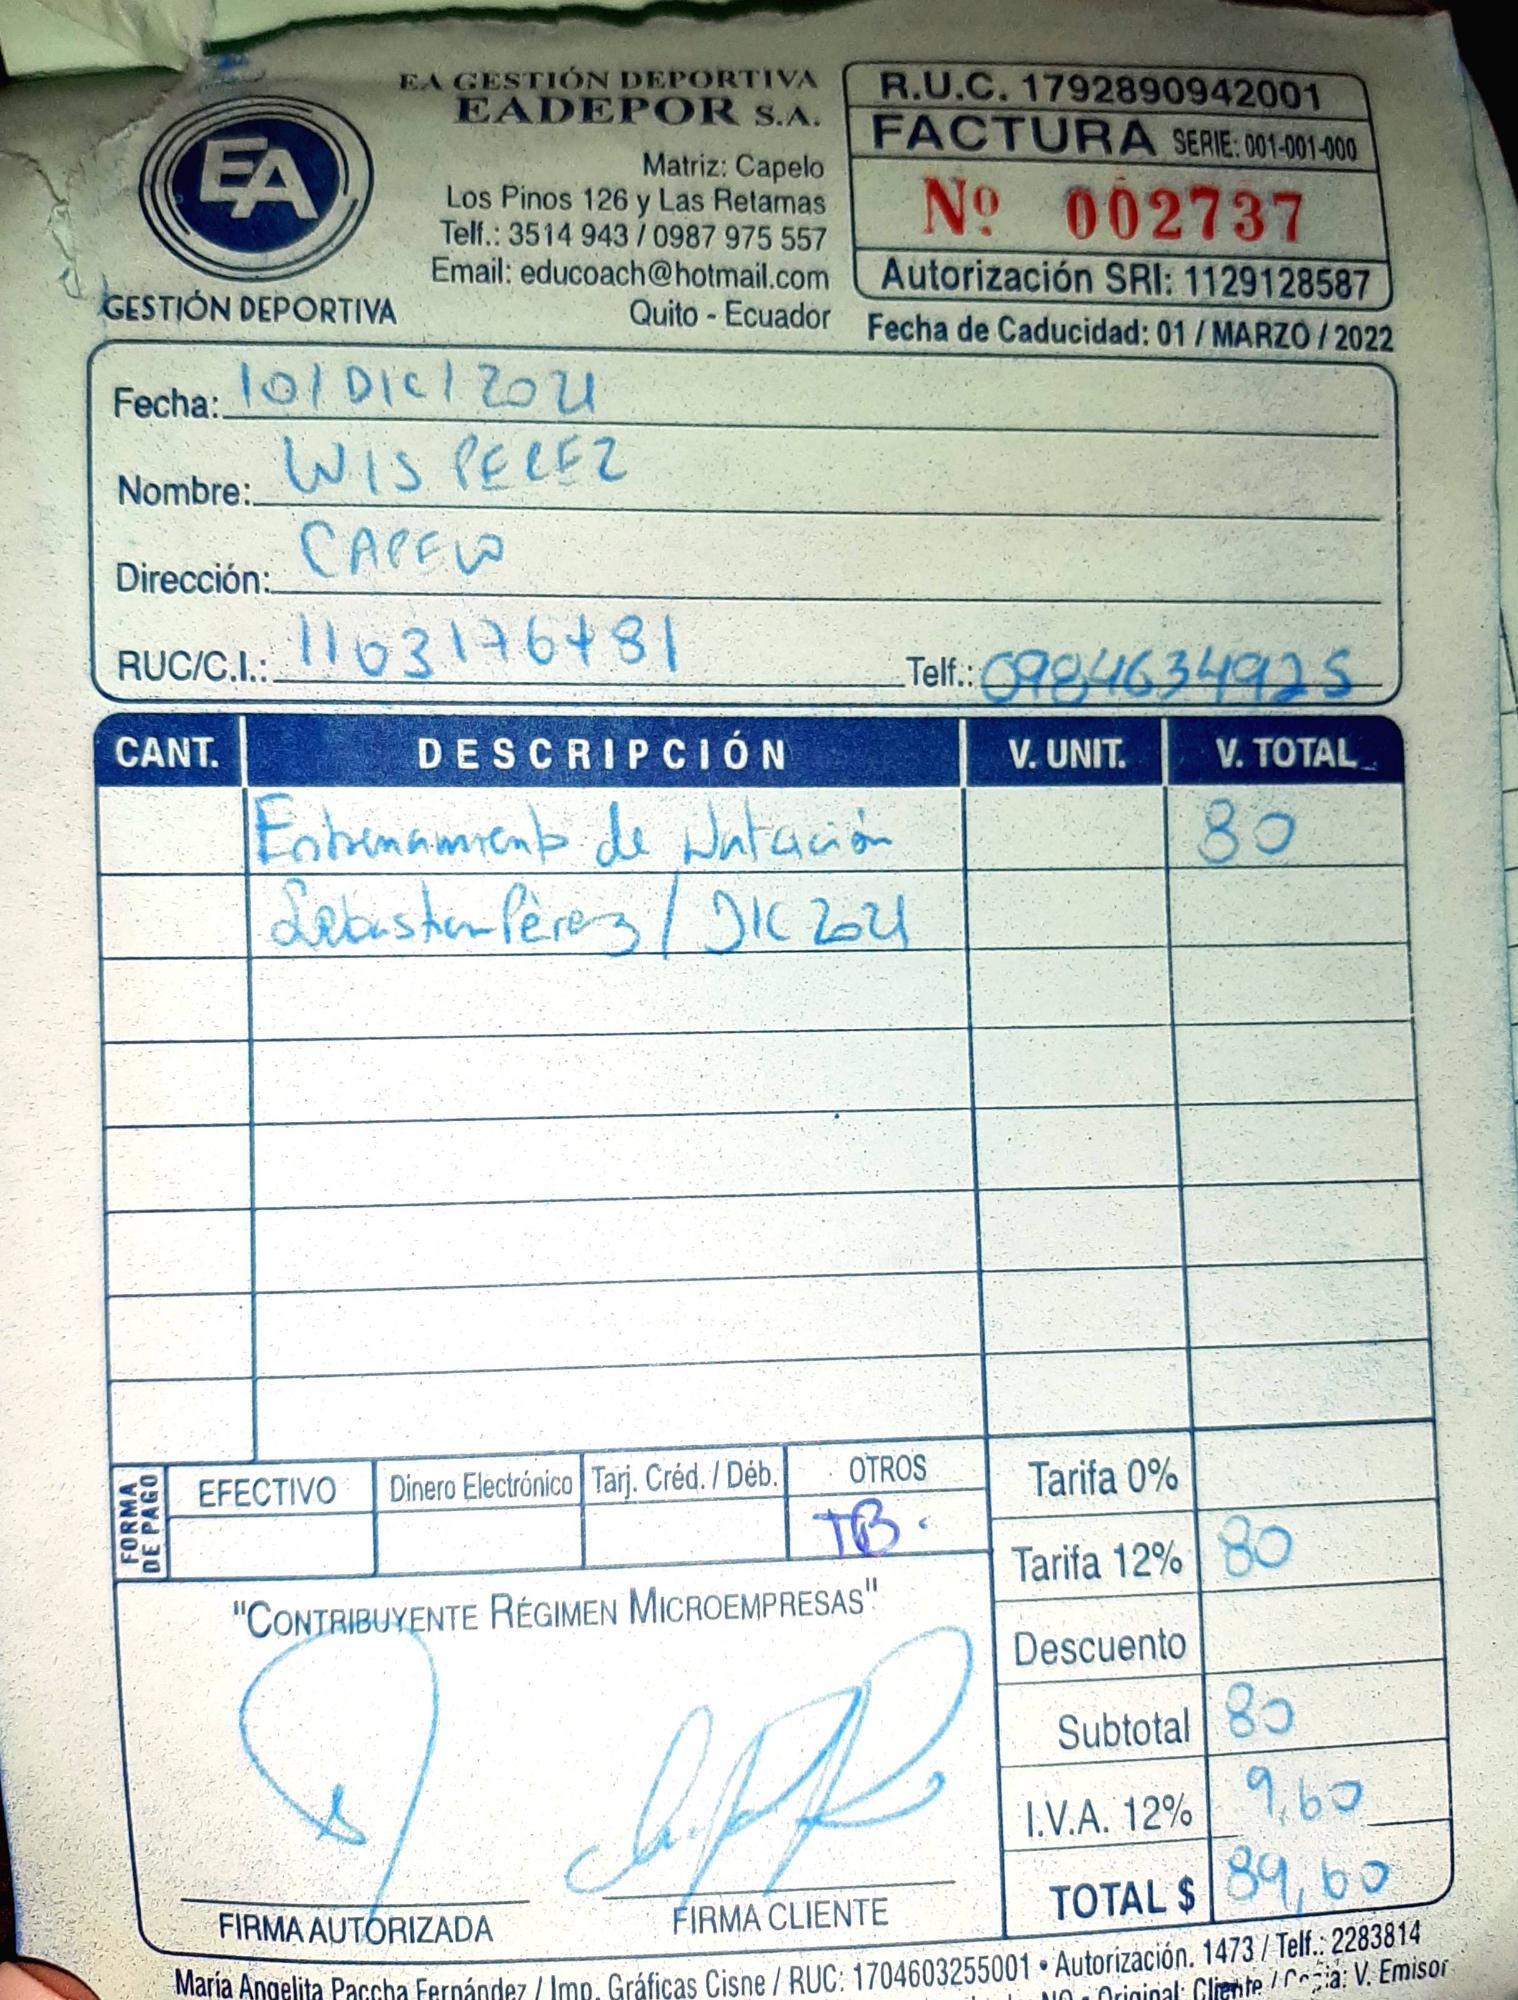 EA GESTIÓN DEPORTIVA
EADEPOR S.A.
EA
GESTIÓN DEPORTIVA
Matriz: Capelo
Los Pinos 126 y Las Retamas
Telf.: 3514 943 / 0987 975 557
Email: educoach@hotmail.com
Quito - Ecuador
R.U.C. 1792890942001
FACTURA SERIE: 001-001-000
Nº 002737
Autorización SRI: 1129128587
Fecha de Caducidad: 01 / MARZO / 2022
Fecha: 10 / DIC / 2021
Nombre: LUIS PEREZ
Dirección: CAPELO
RUC/C.I.: 1103176481 Telf.: 0984634925
CANT. DESCRIPCIÓN V. UNIT. V. TOTAL
Entrenamiento de Natación 80
Sebastian Pérez / DIC 2021
FORMA DE PAGO
EFECTIVO Dinero Electrónico Tarj. Créd. / Déb. OTROS
TB.
Tarifa 0%
Tarifa 12% 80
Descuento
Subtotal 80
I.V.A. 12% 9,60
TOTAL $ 89,60
"CONTRIBUYENTE RÉGIMEN MICROEMPRESAS"
FIRMA AUTORIZADA FIRMA CLIENTE
María Angelita Paccha Fernández / Imp. Gráficas Cisne / RUC: 1704603255001 • Autorización. 1473 / Telf.: 2283814
Original: Cliente / Copia: V. Emisor